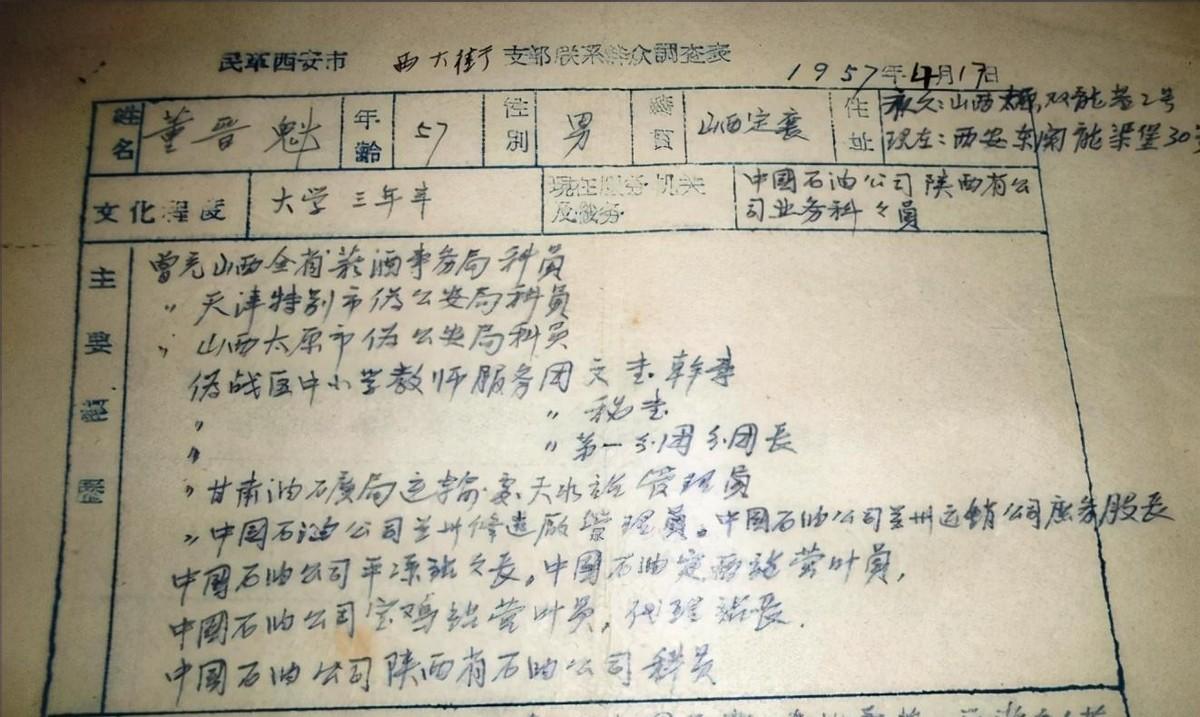 民革西安市 西大街 支部联系群众調查表
1957年4月17日
姓名 董晋魁 年齡 57 性別 男 籍貫 山西定襄 住址 永久:山西太原,双龍巷2号
现在:西安东関龍渠堡30
文化程度 大学三年半 現在服务机关及職务 中國石油公司陕西省公司业务科々員
主要 曾充山西全省菸酒事务局科员
〃 天津特别市伪公安局科員
〃 山西太原市伪公安局科员
伪战区中小学教师服务团文书幹事
〃 〃 秘书
〃 〃 第一分团分团長
〃 甘肃油矿局运输处天水站管理員
〃 中國石油公司兰州修造廠管理員。中國石油公司兰州运销公司庶务股長
中國石油公司平凉站站長。中國石油定西站营业員,
中國石油公司宝鸡站营业員,代理站長.
中國石油公司陕西省石油公司科員